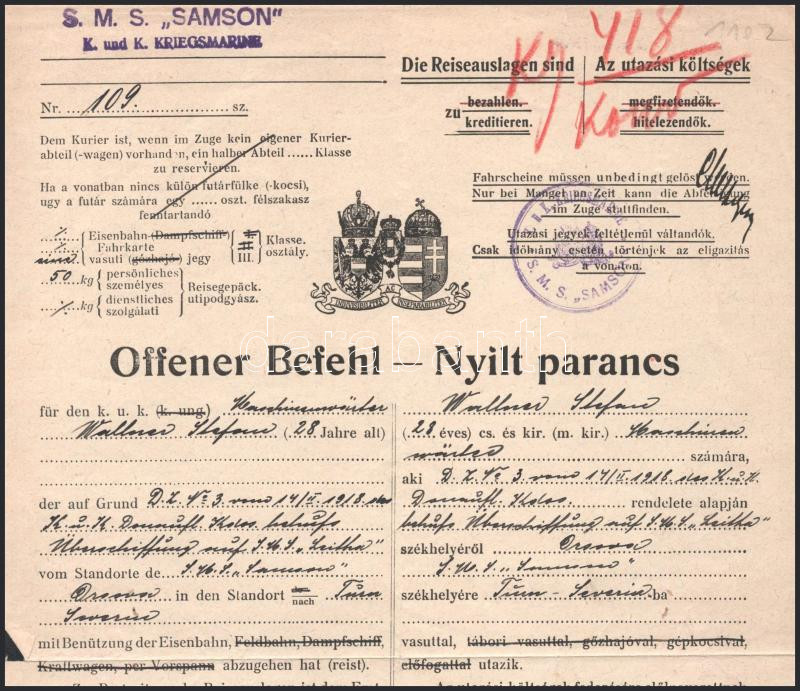 S. M. S. „SAMSON"
K. und K. KRIEGSMARINE
Nr. 109. sz.
Dem Kurier ist, wenn im Zuge kein eigener Kurier-
abteil (-wagen) vorhanden, ein halber Abteil ...... Klasse
zu reservieren.
Ha a vonatban nincs külön futárfülke (-kocsi),
ugy a futár számára egy ...... oszt. félszakasz
fenntartandó
Eisenbahn (Dampfschiff)
Fahrkarte
vasuti (gőzhajó) jegy
II.
III.
Klasse.
osztály.
50 kg persönliches
személyes
kg dienstliches
szolgálati
Reisegepäck.
utipodgyász.
Die Reiseauslagen sind
zu
bezahlen.
kreditieren.
Az utazási költségek
megfizetendők.
hitelezendők.
418
1102
Fahrscheine müssen unbedingt gelöst werden.
Nur bei Mangel an Zeit kann die Abfertigung
im Zuge stattfinden.
Utazási jegyek feltétlenül váltandók.
Csak időhiány esetén történjék az eligazitás
a vonaton.
S. M. S. „SAMSON"
INDIVISIBILITER AC INSEPARABILITER
Offener Befehl — Nyilt parancs
für den k. u. k. (k. ung.) Maschinenwärter
Wallner Stefan (28 Jahre alt)
der auf Grund D.Z. No 3. vom 14/II. 1918. des
K. u. K. Donaufl. Kdos. behufs
Überschiffung auf S.M.S. „Leitha"
vom Standorte de S.M.S. „Samson"
Orsova in den Standort nach Turn
Severin
mit Benützung der Eisenbahn, Feldbahn, Dampfschiff,
Kraftwagen, per Vorspann abzugehen hat (reist).
Wallner Stefan
(28 éves) cs. és kir. (m. kir.) Maschinen
wärter számára,
aki D.Z. No 3. vom 14/II. 1918. des K.u.K.
Donaufl. Kdos. rendelete alapján
behufs Überschiffung auf S.M.S. „Leitha"
székhelyéről Orsova
S.M.S. „Samson"
székhelyére Turn-Severin-ba
vasuttal, tábori vasuttal, gőzhajóval, gépkocsival,
előfogattal utazik.
darabanth